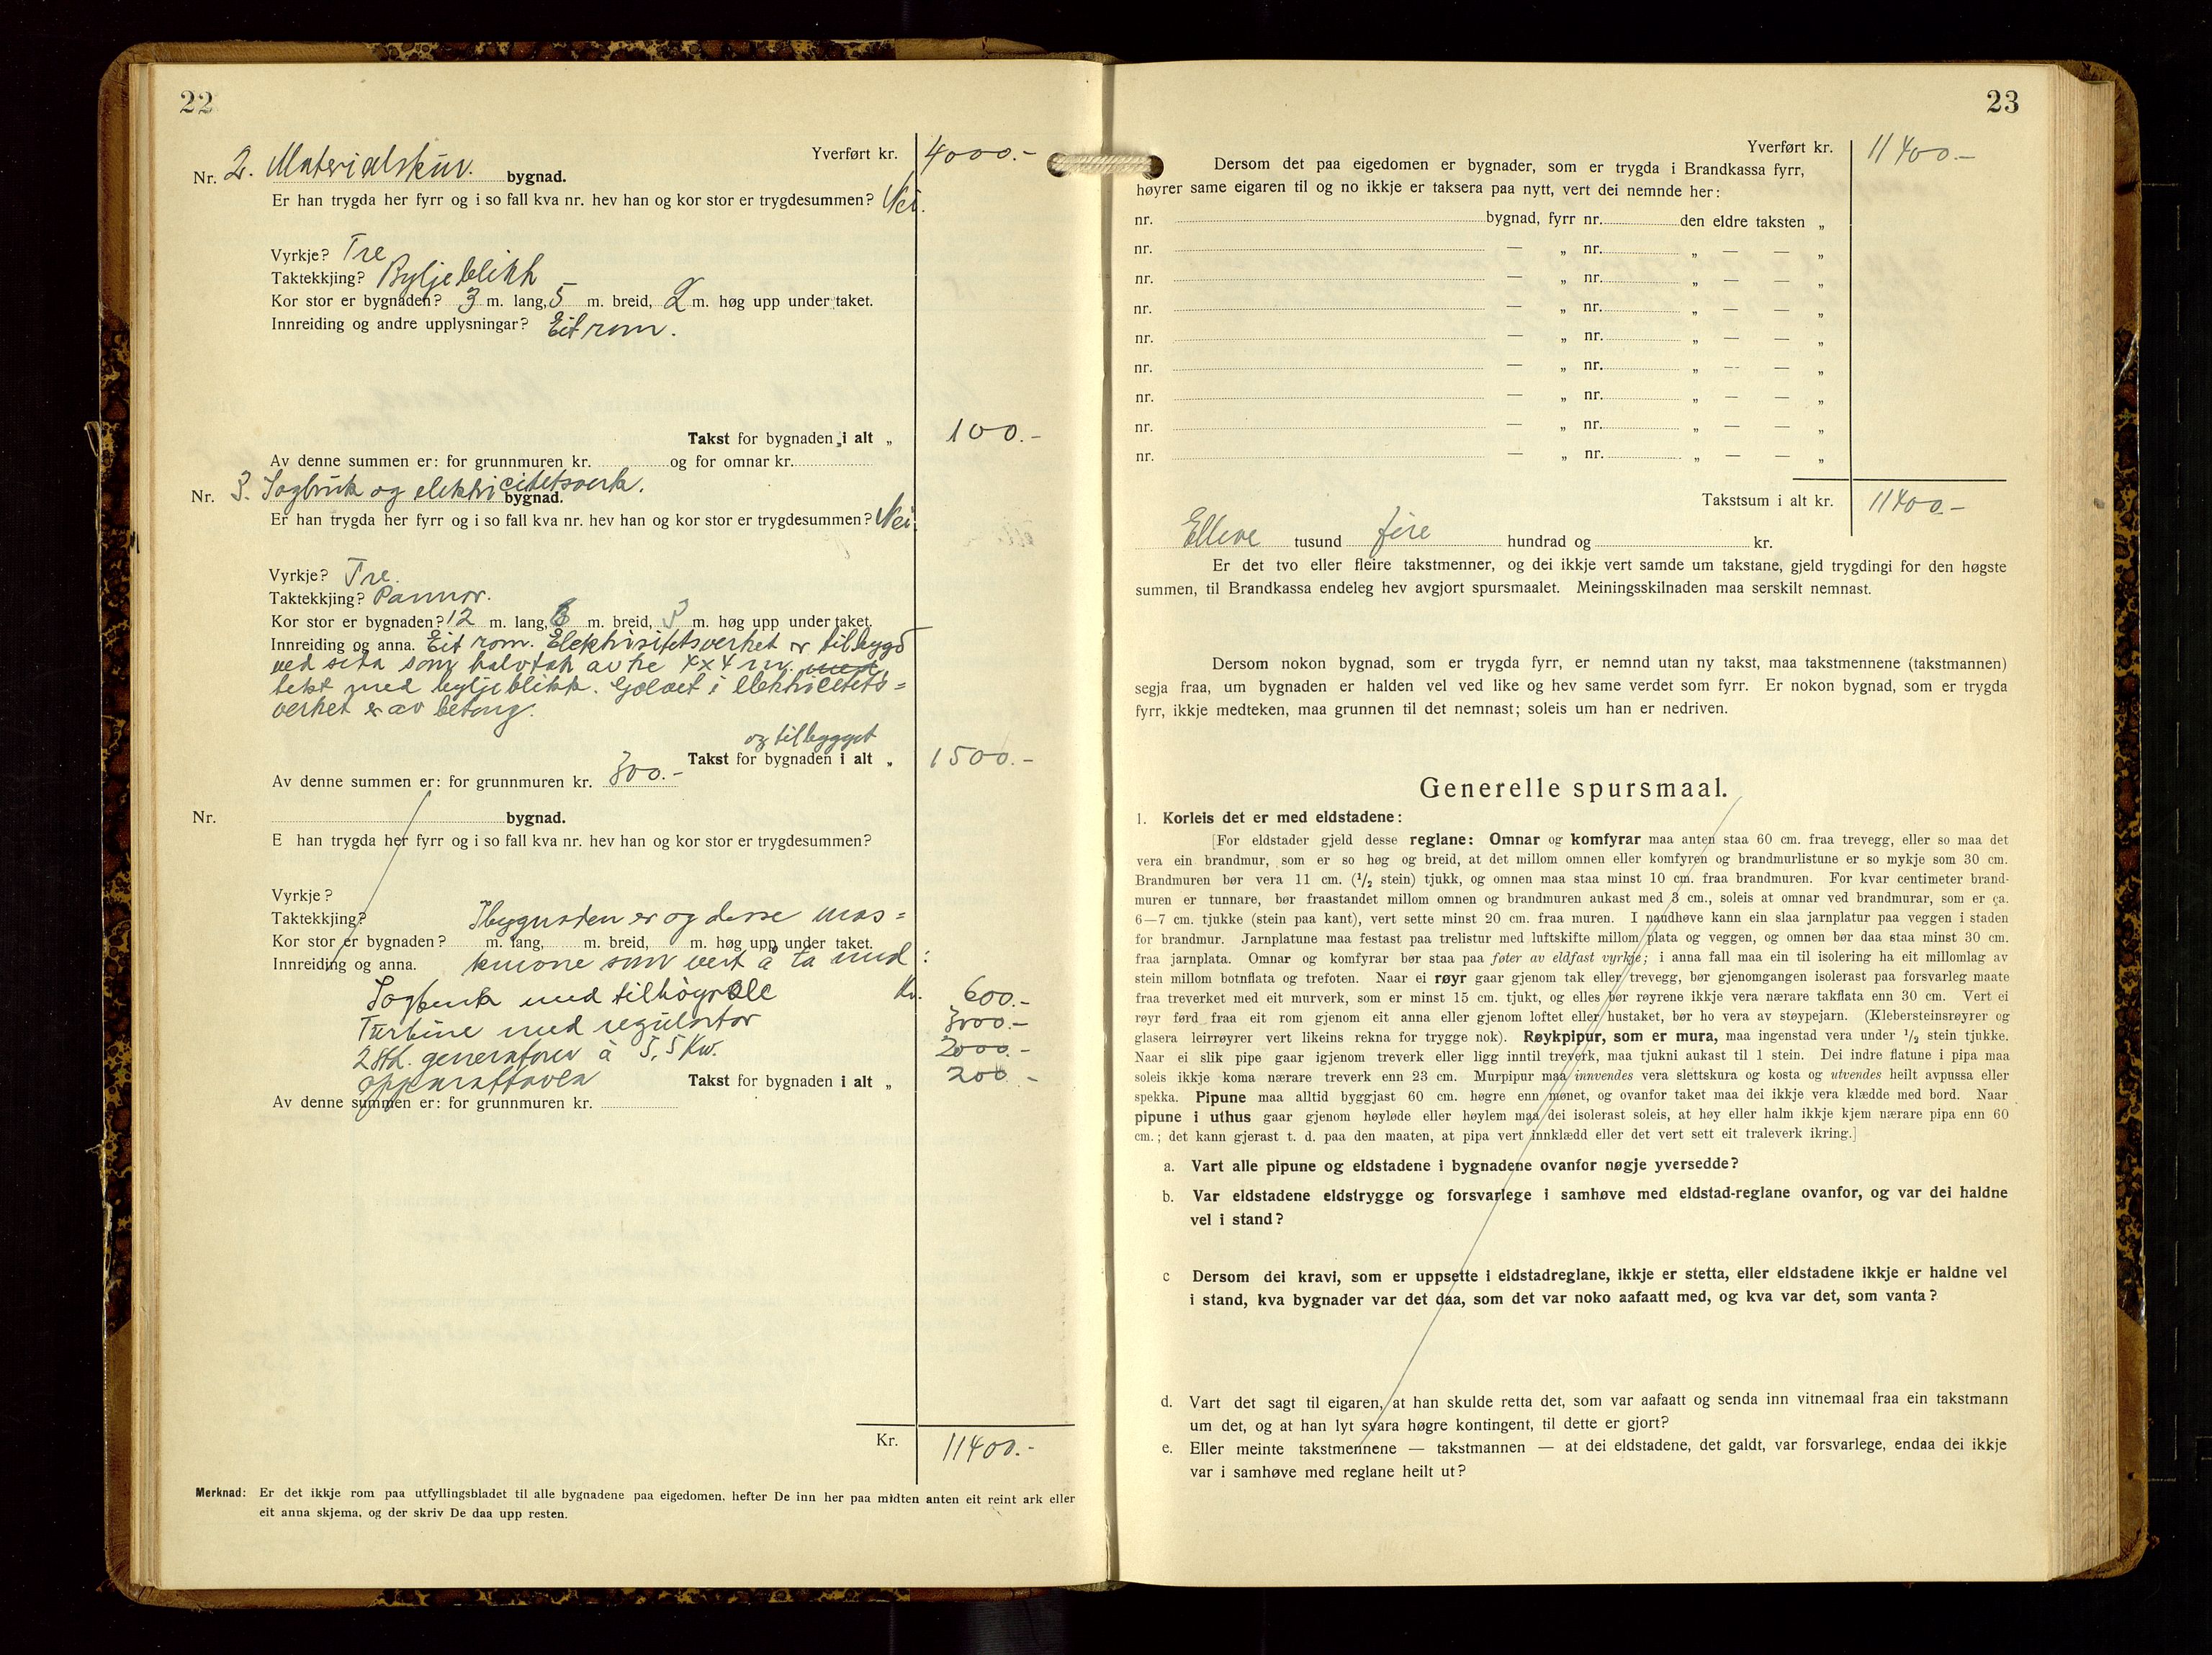 22
Yverført kr. 4000.-
Nr. 2. Materialskur. bygnad.
Er han trygda her fyrr og i so fall kva nr. hev han og kor stor er trygdesummen? Nei.
Vyrkje? Tre
Taktekkjing? Bylgjeblikk
Kor stor er bygnaden? 3 m. lang, 5 m. breid, 2 m. høg upp under taket.
Innreiding og andre upplysningar? Eit rom.
Takst for bygnaden i alt „ 100.-
Av denne summen er: for grunnmuren kr. og for omnar kr.
Nr. 3. Sagbruk og elektricitetsverk. bygnad.
Er han trygda her fyrr og i so fall kva nr. hev han og kor stor er trygdesummen? Nei.
Vyrkje? Tre.
Taktekkjing? Pannor.
Kor stor er bygnaden? 12 m. lang, 6 m. breid, 3 m. høg upp under taket.
Innreiding og anna. Eit rom. Elektrisitetsverket er tilbygd
ved sida som halvtak av tre 4x4 m. med
tekt med bylgjeblikk. Golvet i elektricitets=
verket er av betong.
og tilbygget
Takst for bygnaden i alt „ 1500.-
Av denne summen er: for grunnmuren kr. 300.-
Nr. bygnad.
E han trygda her fyrr og i so fall kva nr. hev han og kor stor er trygdesummen?
Vyrkje?
Taktekkjing? I bygnaden er og desse mas=
Kor stor er bygnaden? m. lang, m. breid, m. høg upp under taket.
Innreiding og anna. kinone som vert å ta med:
Sagbenk med tilhøgrole Kr. 600.-
Turbine med regulator 3000.-
2 Stk. generatorer à 5,5 Kw. 2000.-
Apparattavla Takst for bygnaden i alt „ 200.-
Av denne summen er: for grunnmuren kr.
Kr. 11400.-
Merknad: Er det ikkje rom paa utfyllingsbladet til alle bygnadene paa eigedomen, hefter De inn her paa midten anten eit reint ark eller
eit anna skjema, og der skriv De daa upp resten.
23
Yverført kr. 11400.-
Dersom det paa eigedomen er bygnader, som er trygda i Brandkassa fyrr,
høyrer same eigaren til og no ikkje er taksera paa nytt, vert dei nemnde her:
nr. bygnad, fyrr nr. den eldre taksten „
nr. — „ nr. „ — — „
nr. — „ nr. „ — — „
nr. — „ nr. „ — — „
nr. — „ nr. „ — — „
nr. — „ nr. „ — — „
nr. — „ nr. „ — — „
nr. — „ nr. „ — — „
nr. — „ nr. „ — — „
Takstsum i alt kr. 11400.-
Elleve tusund fire hundrad og kr.
Er det tvo eller fleire takstmenner, og dei ikkje vert samde um takstane, gjeld trygdingi for den høgste
summen, til Brandkassa endeleg hev avgjort spursmaalet. Meiningsskilnaden maa serskilt nemnast.
Dersom nokon bygnad, som er trygda fyrr, er nemnd utan ny takst, maa takstmennene (takstmannen)
segja fraa, um bygnaden er halden vel ved like og hev same verdet som fyrr. Er nokon bygnad, som er trygda
fyrr, ikkje medteken, maa grunnen til det nemnast; soleis um han er nedriven.
Generelle spursmaal.
1. Korleis det er med eldstadene:
[For eldstader gjeld desse reglane: Omnar og komfyrar maa anten staa 60 cm. fraa trevegg, eller so maa det
vera ein brandmur, som er so høg og breid, at det millom omnen eller komfyren og brandmurlistune er so mykje som 30 cm.
Brandmuren bør vera 11 cm. (1/2 stein) tjukk, og omnen maa staa minst 10 cm. fraa brandmuren. For kvar centimeter brand-
muren er tunnare, bør fraastandet millom omnen og brandmuren aukast med 3 cm., soleis at omnar ved brandmurar, som er ca.
6—7 cm. tjukke (stein paa kant), vert sette minst 20 cm. fraa muren. I naudhøve kann ein slaa jarnplatur paa veggen i staden
for brandmur. Jarnplatune maa festast paa trelistur med luftskifte millom plata og veggen, og omnen bør daa staa minst 30 cm.
fraa jarnplata. Omnar og komfyrar bør staa paa føter av eldfast vyrkje; i anna fall maa ein til isolering ha eit millomlag av
stein millom botnflata og trefoten. Naar ei røyr gaar gjenom tak eller trevegg, bør gjenomgangen isolerast paa forsvarleg maate
fraa treverket med eit murverk, som er minst 15 cm. tjukt, og elles bør røyrene ikkje vera nærare takflata enn 30 cm. Vert ei
røyr førd fraa eit rom gjenom eit anna eller gjenom loftet eller hustaket, bør ho vera av støypejarn. (Klebersteinsrøyrer og
glasera leirrøyrer vert likeins rekna for trygge nok). Røykpipur, som er mura, maa ingenstad vera under 1/2 stein tjukke.
Naar ei slik pipe gaar igjenom treverk eller ligg inntil treverk, maa tjukni aukast til 1 stein. Dei indre flatune i pipa maa
soleis ikkje koma nærare treverk enn 23 cm. Murpipur maa innvendes vera slettskura og kosta og utvendes heilt avpussa eller
spekka. Pipune maa alltid byggjast 60 cm. høgre enn mønet, og ovanfor taket maa dei ikkje vera klædde med bord. Naar
pipune i uthus gaar gjenom høyløde eller høylem maa dei isolerast soleis, at høy eller halm ikkje kjem nærare pipa enn 60
cm.; det kann gjerast t. d. paa den maaten, at pipa vert innklædd eller det vert sett eit traleverk ikring.]
a. Vart alle pipune og eldstadene i bygnadene ovanfor nøgje yversedde?
b. Var eldstadene eldstrygge og forsvarlege i samhøve med eldstad-reglane ovanfor, og var dei haldne
vel i stand?
c Dersom dei kravi, som er uppsette i eldstadreglane, ikkje er stetta, eller eldstadene ikkje er haldne vel
i stand, kva bygnader var det daa, som det var noko aafaatt med, og kva var det, som vanta?
d. Vart det sagt til eigaren, at han skulde retta det, som var aafaatt og senda inn vitnemaal fraa ein takstmann
um det, og at han lyt svara høgre kontingent, til dette er gjort?
e. Eller meinte takstmennene — takstmannen — at dei eldstadene, det galdt, var forsvarlege, endaa dei ikkje
var i samhøve med reglane heilt ut?